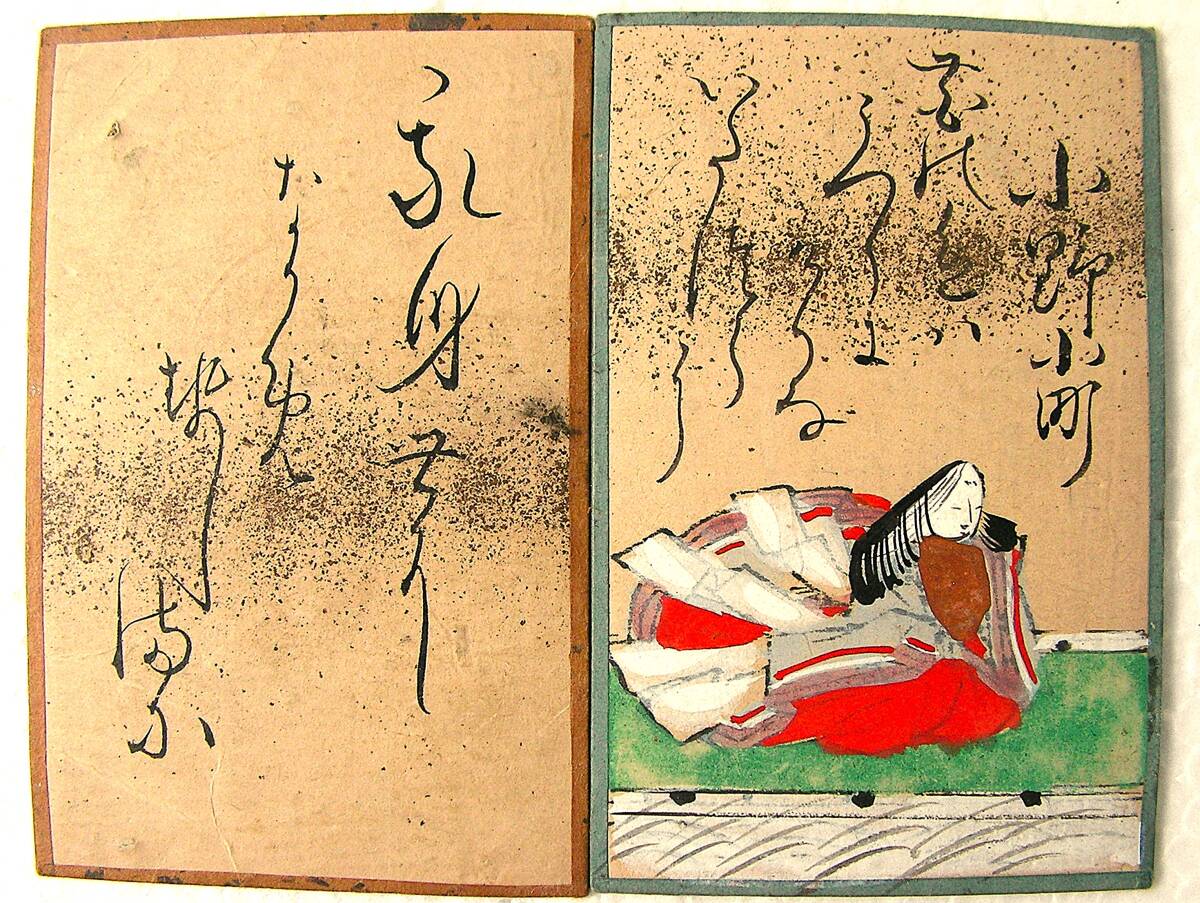 小野小町
花の色ハ
うつりに
けりな
いたつらに
我身世にふる
なかめ
せし
まに